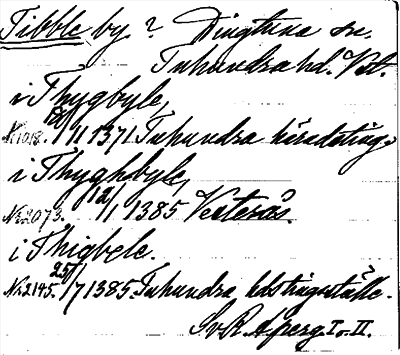 Tibble by? Dingtuna sn.
Tuhundra hd. Vstl.
i Thygbyle,
N: 1018. 15/11 1371 Tuhundra häradsting.
i Thyghbyle,
N: 2073. 12/11 1385 Vesterås.
i Thigbele.
N: 2145. 25/7 1385. Tuhundra hdstingsställe.
Sv. R. Aperg. I o. II.